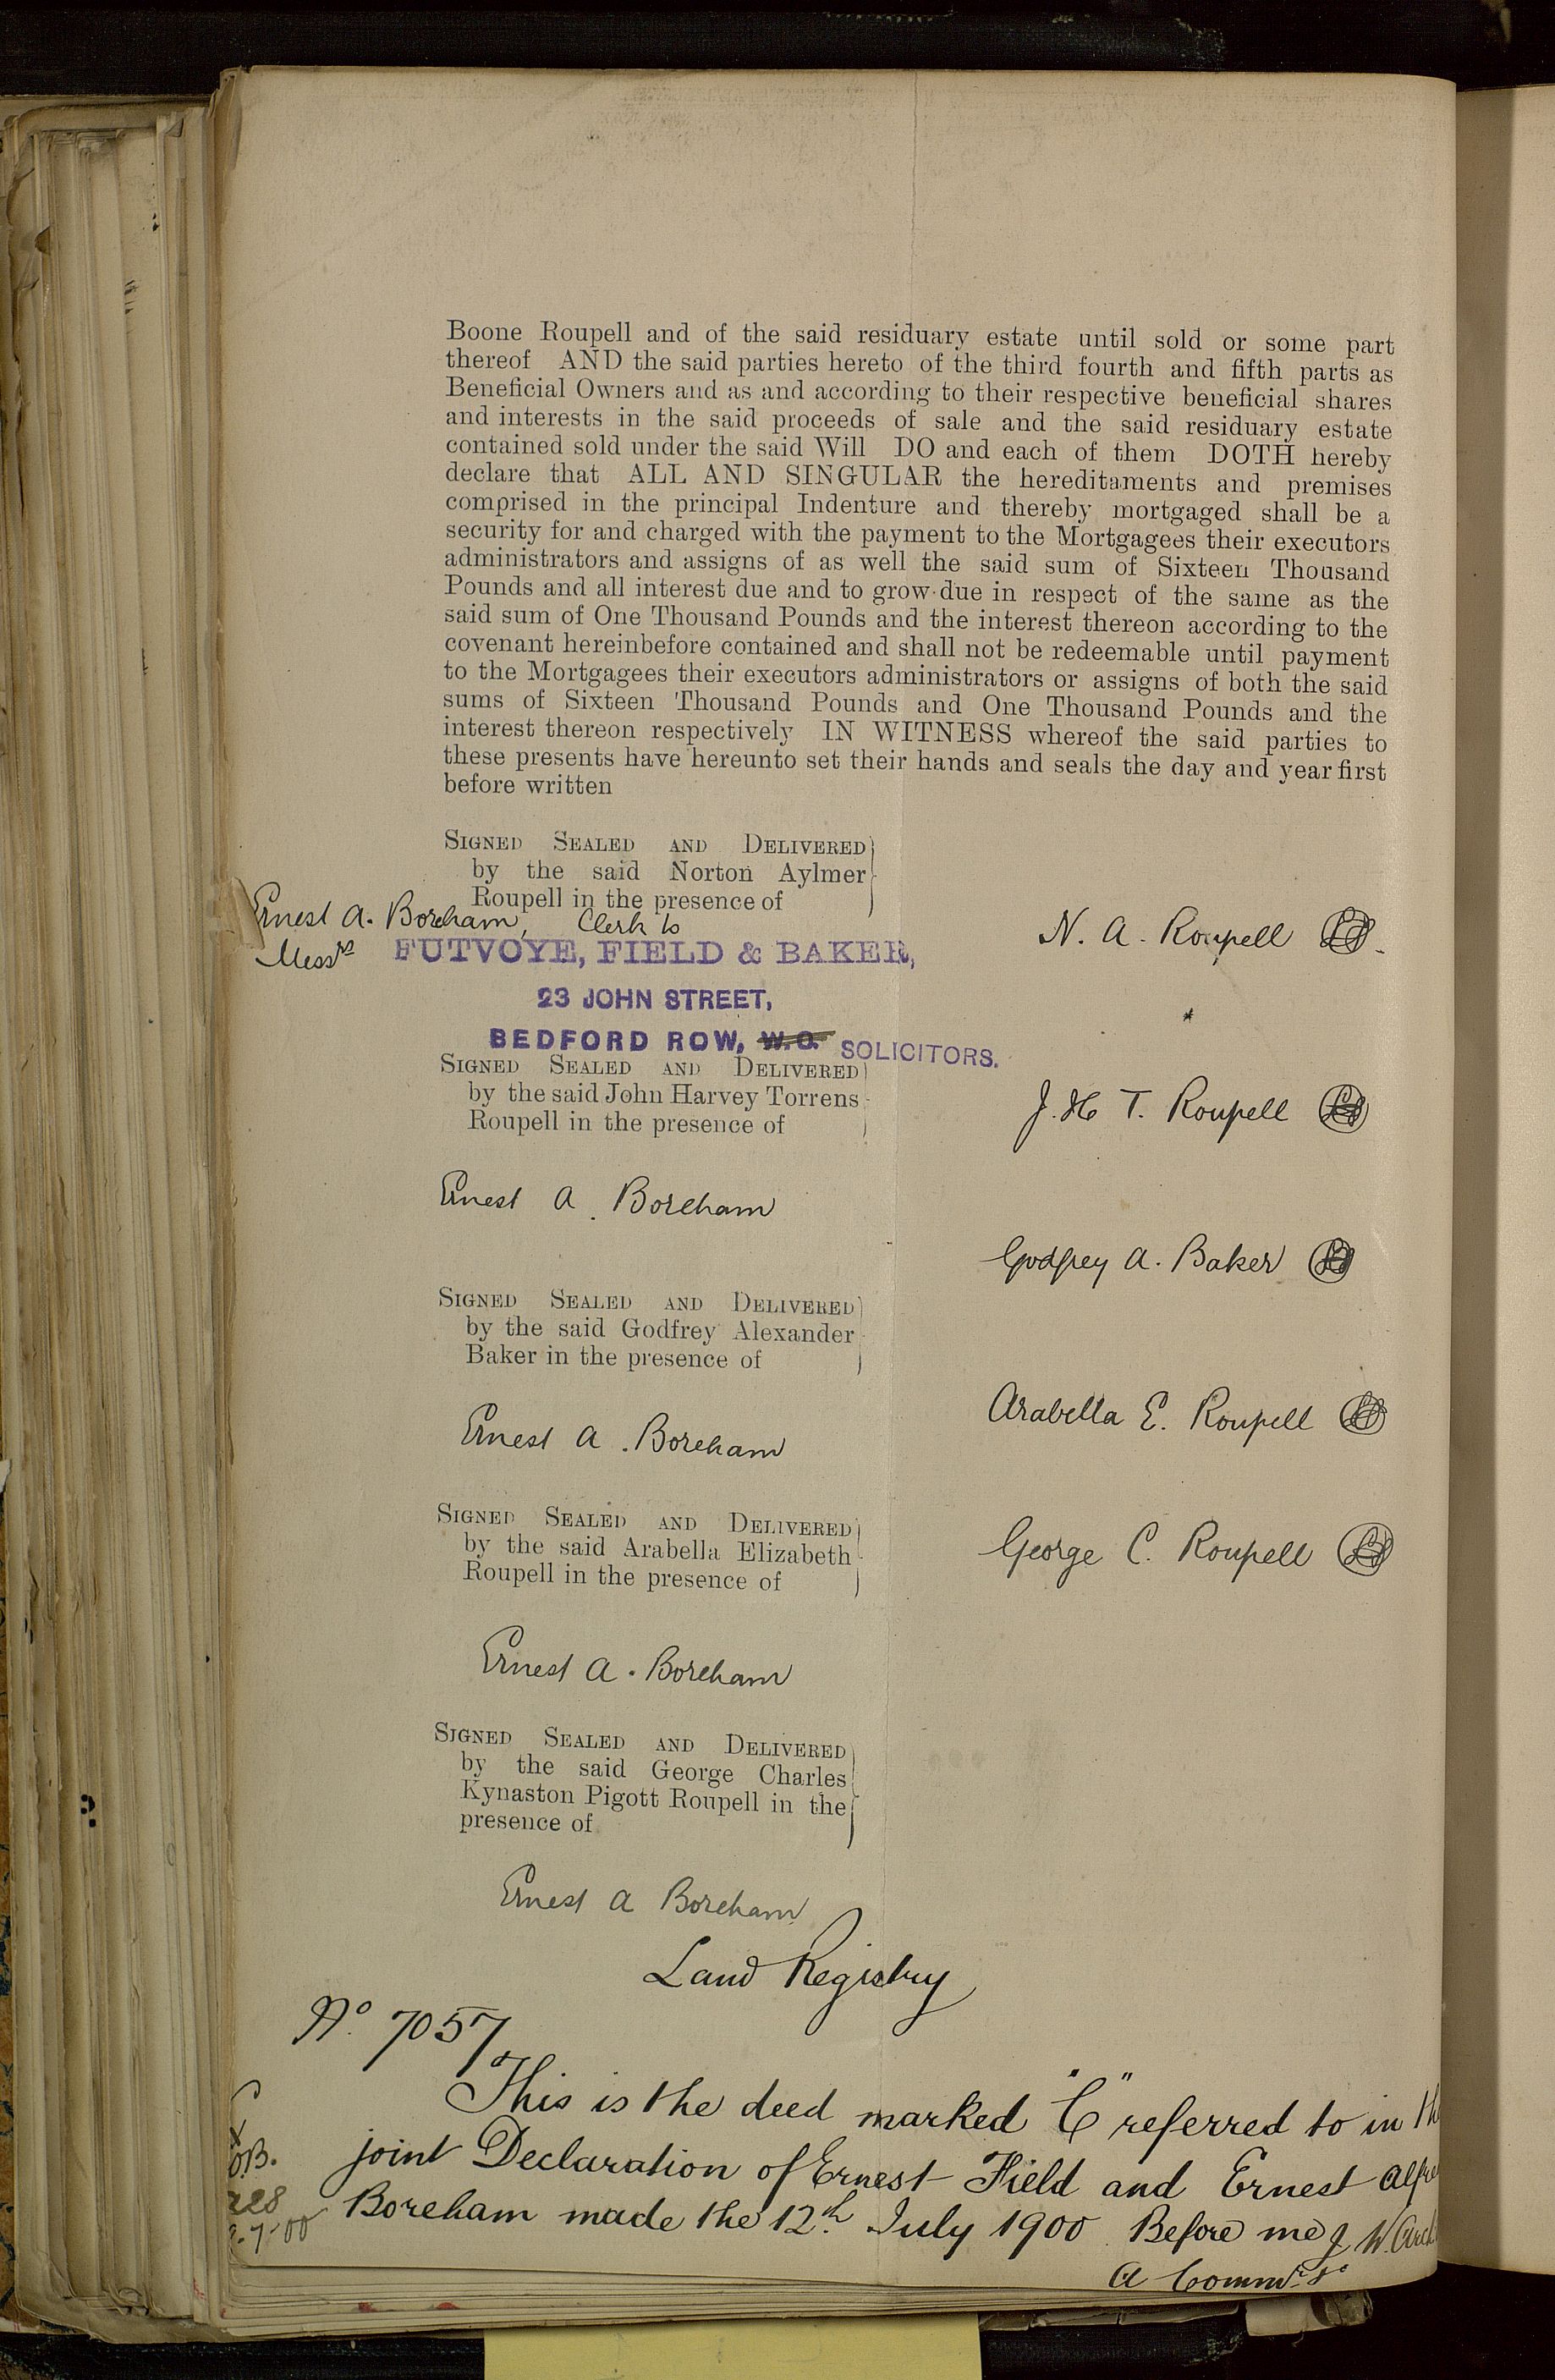 Boone Roupell and of the said residuary estate until sold or some part
thereof AND the said parties hereto of the third fourth and fifth parts as
Beneficial Owners and as and according to their respective beneficial shares
and interests in the said proceeds of sale and the said residuary estate
contained sold under the said Will DO and each of them DOTH hereby
declare that ALL AND SINGULAR the hereditaments and premises
comprised in the principal Indenture and thereby mortgaged shall be a
security for and charged with the payment to the Mortgagees their executors
administrators and assigns of as well the said sum of Sixteen Thousand
Pounds and all interest due and to grow due in respect of the same as the
said sum of One Thousand Pounds and the interest thereon according to the
covenant hereinbefore contained and shall not be redeemable until payment
to the Mortgagees their executors administrators or assigns of both the said
sums of Sixteen Thousand Pounds and One Thousand Pounds and the
interest thereon respectively IN WITNESS whereof the said parties to
these presents have hereunto set their hands and seals the day and year first
before written
SIGNED SEALED AND DELIVERED
by the said Norton Aylmer
Roupell in the presence of
Ernest A. Boreham, Clerk to
N. A. Roupell
Messrs FUTVOYE, FIELD & BAKER,
23 JOHN STREET,
BEDFORD ROW, W.C. SOLICITORS.
SIGNED SEALED AND DELIVERED
by the said John Harvey Torrens
Roupell in the presence of
J. H. T. Roupell
Ernest A. Boreham
Godfrey A. Baker
SIGNED SEALED AND DELIVERED
by the said Godfrey Alexander
Baker in the presence of
Arabella E. Roupell
Ernest A. Boreham
SIGNED SEALED AND DELIVERED
by the said Arabella Elizabeth
Roupell in the presence of
George C. Roupell
Ernest A. Boreham
SIGNED SEALED AND DELIVERED
by the said George Charles
Kynaston Pigott Roupell in the
presence of
Ernest A Boreham
Land Registry
No. 7057
This is the deed marked "C" referred to in
joint Declaration of Ernest Field and Ernest
Boreham made the 12th July 1900 Before me